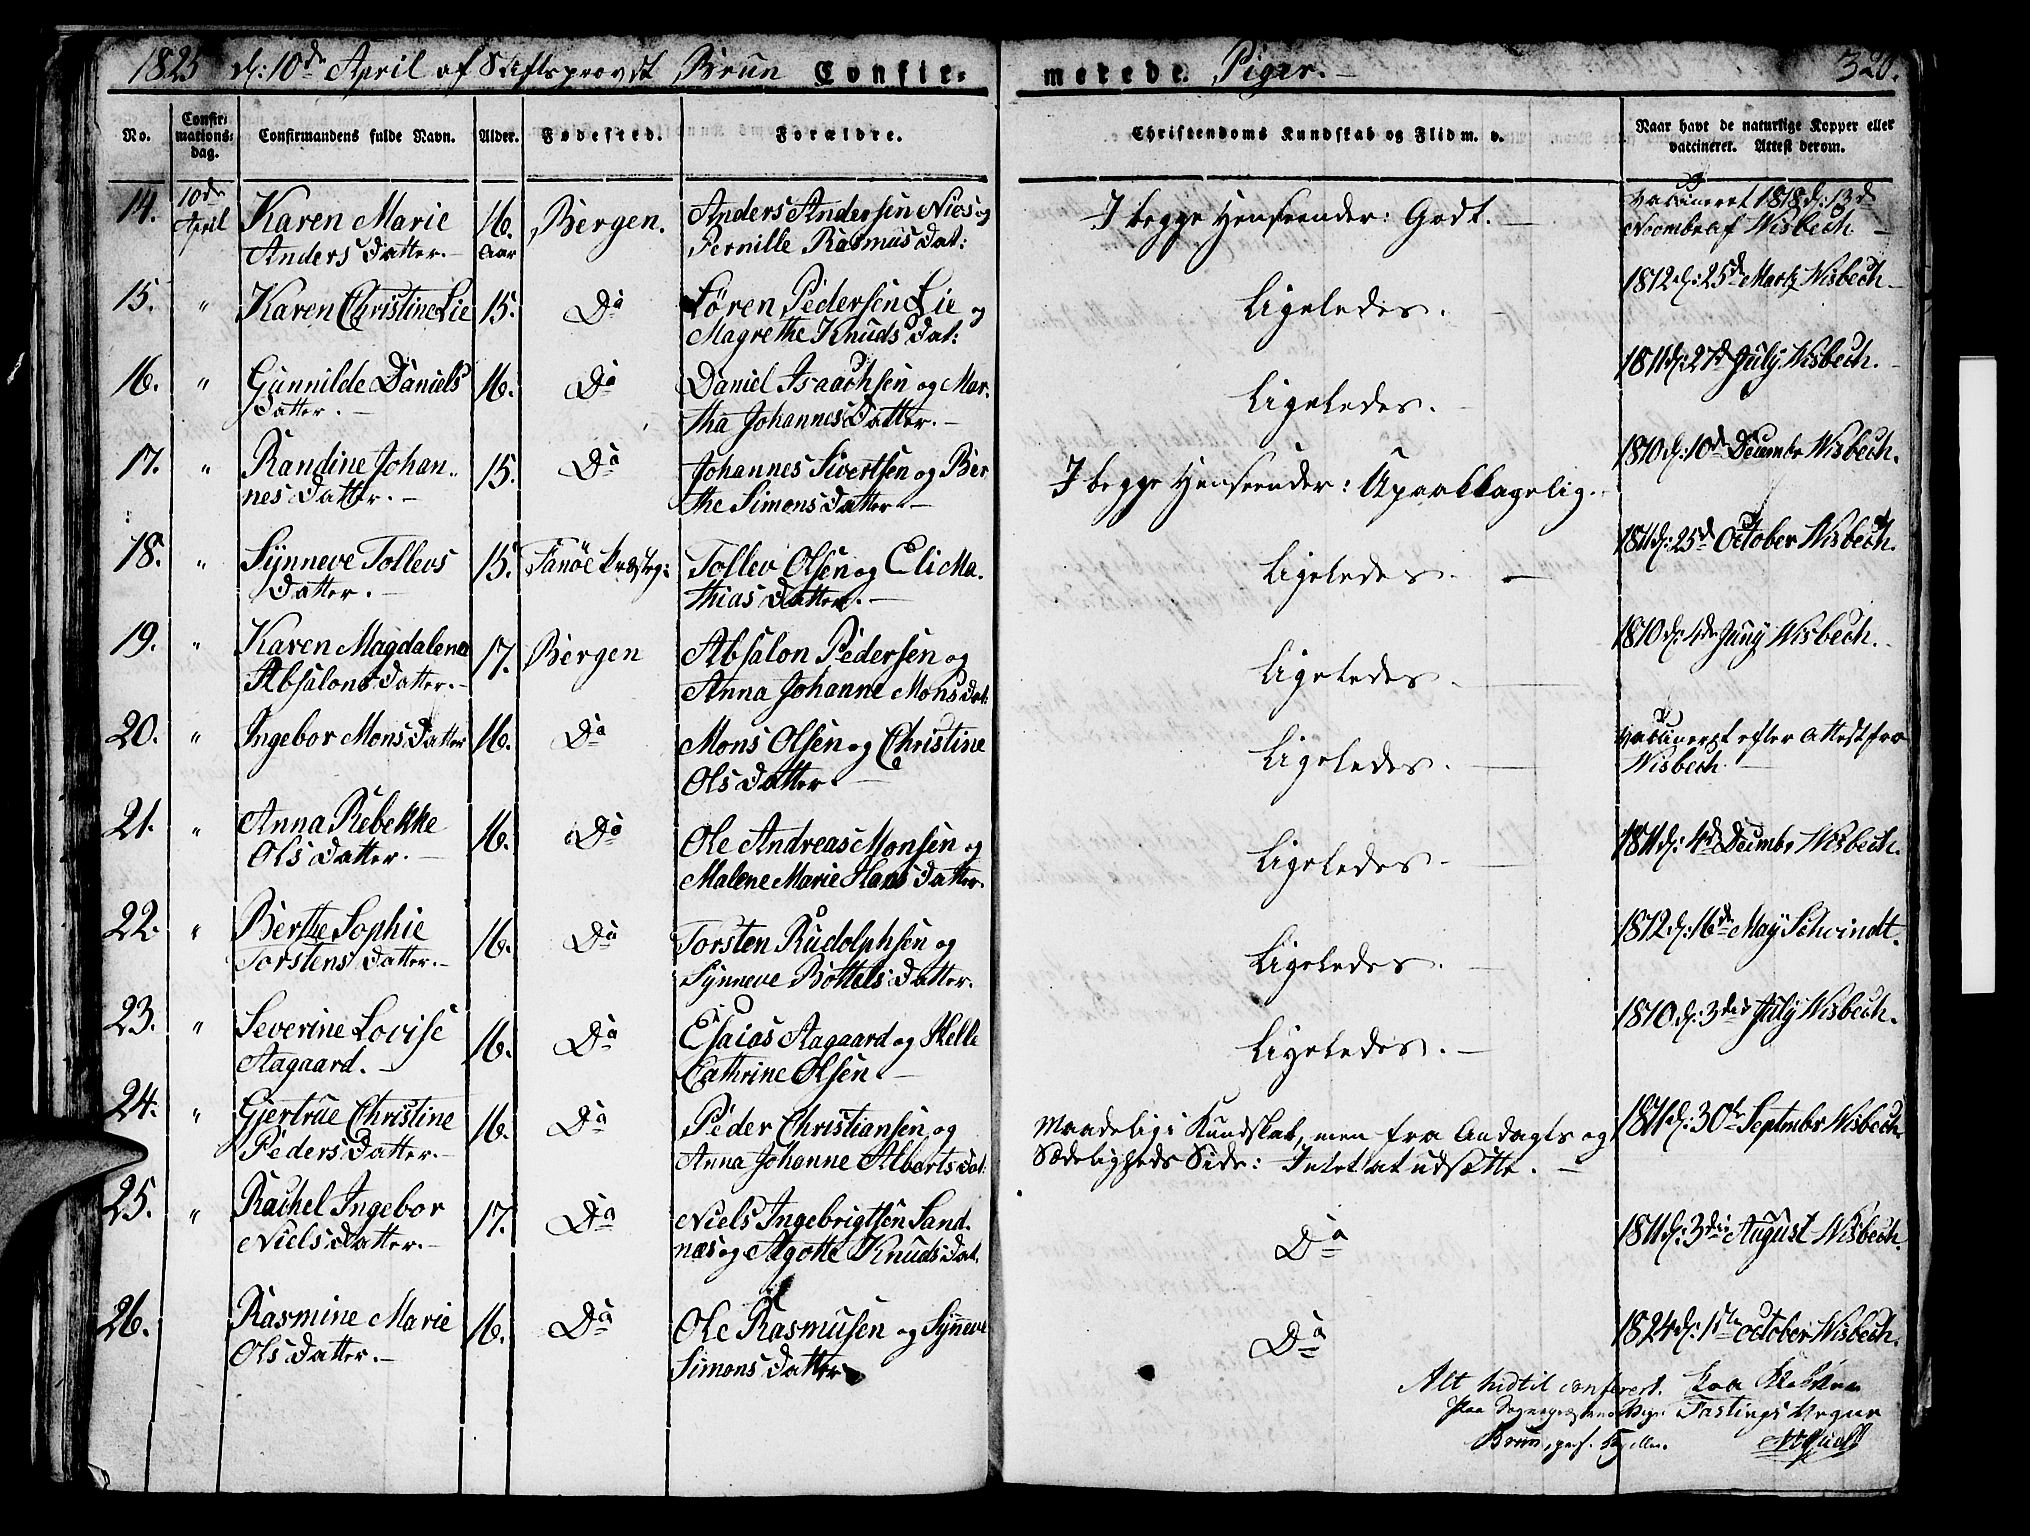 1825 d: 10de April af Stiftsprovst Brun Confir-
merede Piger.
320.
No.
Confir-
mations-
dag.
Confirmandens fulde Navn.
Alder.
Fødested.
Forældre.
Christendoms Kundskab og Flid m. v.
Naar havt de naturlige Kopper eller
vaccineret. Attest derom.
14. 10de Karen Marie 16. Bergen. Anders Andersen Nies og I begge Henseender: Godt. vaccineret 1818 d: 13de
April Anders Datter. Aar Pernille Rasmus Dat: Novembr af Wisbech
15. " Karen Christine Lie 15. Do Søren Pedersen Lie og Ligeledes. 1812 d: 25de Martz Wisbech
Magrethe Knuds Dat:
16. " Gunnilde Daniels 16. Do Daniel Isaachsen og Mar- Ligeledes. 1811 d: 27de July Wisbech.
Datter. tha Johannes Datter.
17. " Randine Johan- 15. Do Johannes Sivertsen og Ber I begge Henseender: Upaaklagelig. 1810 d: 10de Decembr Wisbech.
nes Datter. the Simons Datter
18. " Synneve Tollevs 15. Fanöe Præstegj: Tollev Olsen og Eli Ma- Ligeledes. 1811 d: 25de October Wisbech.
Datter. thias Datter.
19. " Karen Magdalena 17. Bergen Absalon Pedersen og Ligeledes. 1810 d: 4de Juny Wisbech.
Absalons Datter. Anna Johanne Mons Dat:
20. " Ingebor Mons Datter 16. Do Mons Olsen og Christine Ligeledes. vaccineret efter Attest fra
Ols Datter Wisbech
21. " Anna Rebekke 16. Do Ole Andreas Monsen og Ligeledes. 1811 d: 4de Decembr Wisbech.
Ols Datter. Malene Marie Hans Datter.
22. " Berthe Sophie 16. Do Torsten Rudolphsen og Ligeledes. 1812 d: 16de May Schvindt.
Torstens Datter. Synneve Bottels Datter.
23. " Severine Lovise 16. Do Esaias Aagaard og Helle Ligeledes. 1810 d: 3die July Wisbech.
Aagaard. Cathrine Olsen.
24. " Gjertrue Christine 16. Do Peder Christiansen og Maadelig i Kundskab, men fra Andagts og 1811 d: 30te Septembr Wisbech
Peders Datter. Anna Johanne Alberts Dat: Sædeligheds Side: Intet at udsætte.
25. " Rachel Ingebor 17. Do Niels Ingebrigtsen Sand- Do 1811 d: 3die August Wisbech.
Niels Datter. næs og Agotte Knuds Dat.
26. Rasmine Marie 16. Do Ole Rasmusen og Synneve Do 1824 d: 1ste October Wisbech.
Ols Datter. Simons Datter
Alt hidtil confereret.
Fastings Vegne
Brun